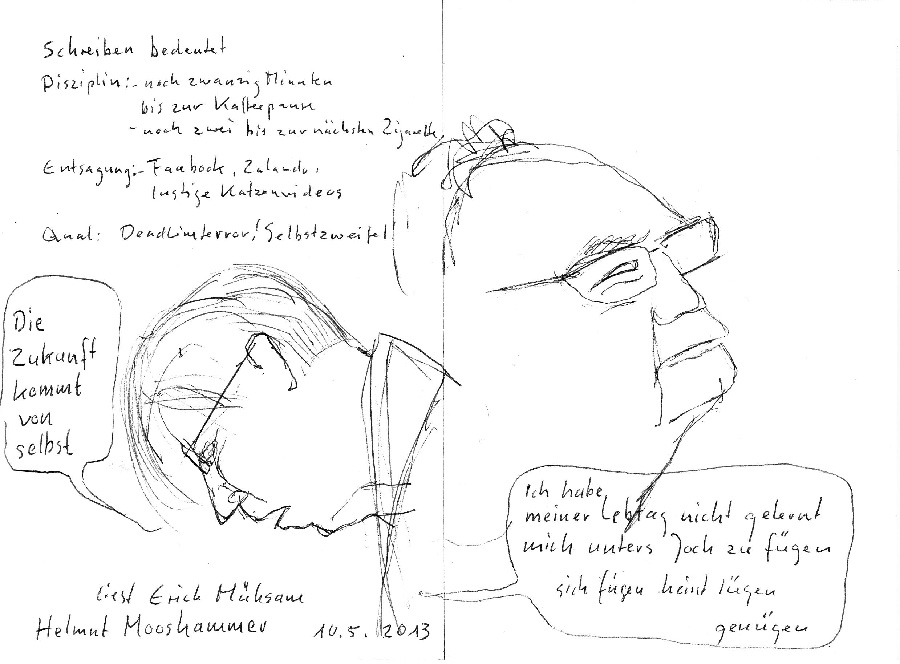 Schreiben bedeutet
Disziplin: - noch zwanzig Minuten
bis zur Kaffeepause
- noch zwei bis zur nächsten Zigarette
Entsagung: - Facebook, Zalando,
lustige Katzenvideos
Qual: Deadlineterror! Selbstzweifel
Die
Zukunft
kommt
von
selbst
ich habe
meiner Lebtag nicht gelernt
mich unters Joch zu fügen
sich fügen heisst lügen
genügen
liest Erich Mühsam
Helmut Mooshammer 10.5.2013